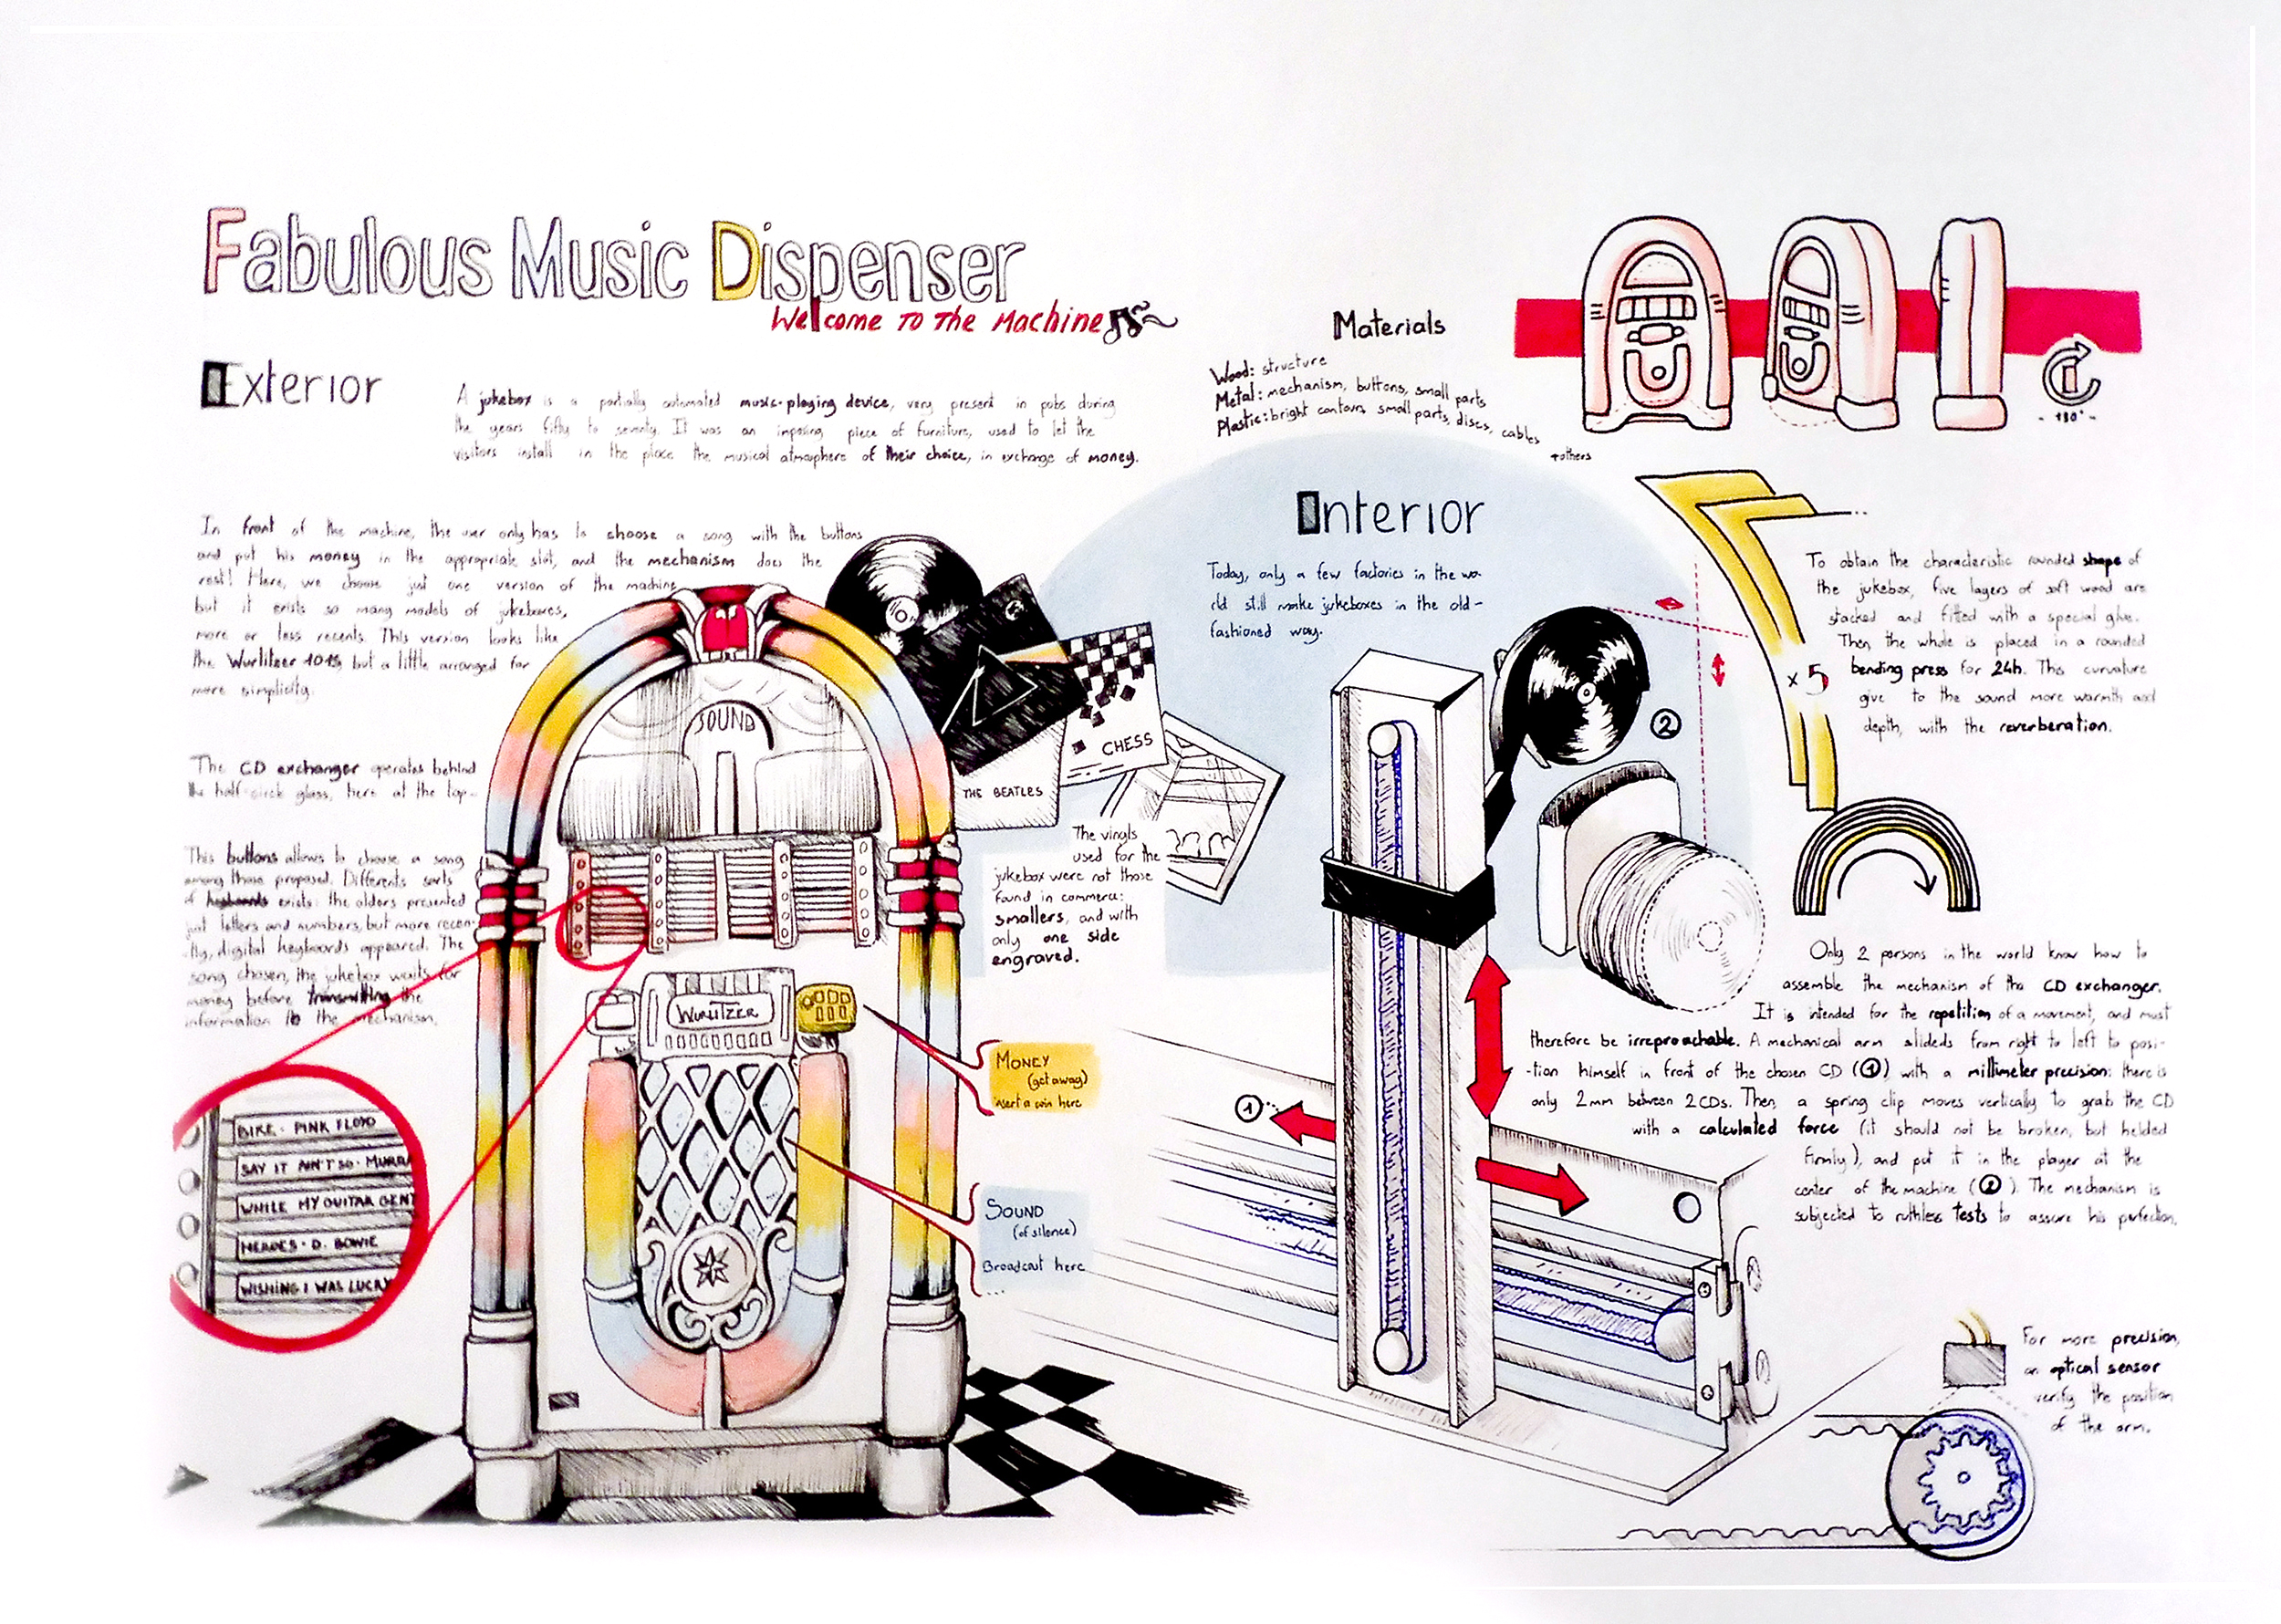 Fabulous Music Dispenser
Welcome To The Machine
Exterior
A jukebox is a partially automated music-playing device, very present in pubs during
the years fifty to seventy. It was an imposing piece of furniture, used to let the
visitors install in the place the musical atmosphere of their choice, in exchange of money.
In front of the machine, the user only has to choose a song with the buttons
and put his money in the appropriate slot, and the mechanism does the
rest! Here, we choose just one version of the machine
but it exists so many models of jukeboxes,
more or less recents. This version looks like
the Wurlitzer 1015, but a little arranged for
more simplicity.
The CD exchanger operates behind
the half-circle glass, here at the top.
This buttons allows to choose a song
among those proposed. Differents sorts
of keyboards exists: the olders presented
just letters and numbers, but more recen-
tly, digital keyboards appeared. The
song chosen, the jukebox waits for
money before transmitting the
information to the mechanism.
BIKE · PINK FLOYD
SAY IT AIN'T SO · MURRA
WHILE MY GUITAR GENT
HEROES · D. BOWIE
WISHING I WAS LUCKY
SOUND
WURLITZER
THE BEATLES
CHESS
The vinyls
used for the
jukebox were not those
found in commerce:
smallers, and with
only one side
engraved.
MONEY
(get away)
insert a coin here
SOUND
(of silence)
Broadcast here
Materials
Wood: structure
Metal: mechanism, buttons, small parts
Plastic: bright contours, small parts, discs, cables
+others
180°
Interior
Today, only a few factories in the wo-
rld still make jukeboxes in the old-
fashioned way.
2
1
x 5
To obtain the characteristic rounded shape of
the jukebox, five layers of soft wood are
stacked and fitted with a special glue.
Then the whole is placed in a rounded
bending press for 24h. This curvature
give to the sound more warmth and
depth, with the reverberation.
Only 2 persons in the world know how to
assemble the mechanism of the CD exchanger.
It is intended for the repetition of a movement, and must
therefore be irreproachable. A mechanical arm slideds from right to left to posi-
-tion himself in front of the chosen CD (1) with a millimeter precision: there is
only 2mm between 2 CDs. Then, a spring clip moves vertically to grab the CD
with a calculated force (it should not be broken, but helded
firmly), and put it in the player at the
center of the machine (2). The mechanism is
subjected to ruthless tests to assure his perfection.
For more precision,
an optical sensor
verify the position
of the arm.